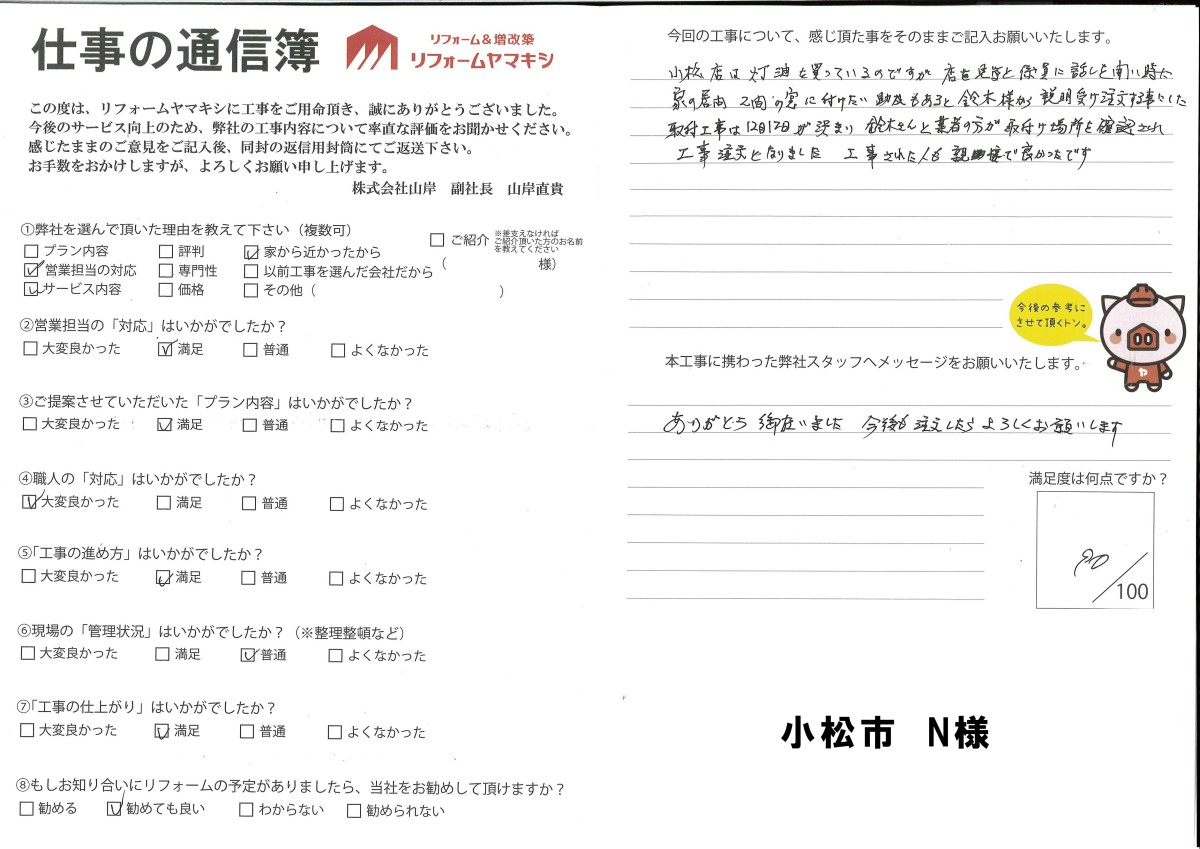 仕事の通信簿
リフォーム&増改築
リフォームヤマキシ
この度は、リフォームヤマキシに工事をご用命頂き、誠にありがとうございました。
今後のサービス向上のため、弊社の工事内容について率直な評価をお聞かせください。
感じたままのご意見をご記入後、同封の返信用封筒にてご返送下さい。
お手数をおかけしますが、よろしくお願い申し上げます。
株式会社山岸 副社長 山岸直貴
①弊社を選んで頂いた理由を教えて下さい（複数可）
□プラン内容 □評判 ☑家から近かったから
☑営業担当の対応 □専門性 □以前工事を選んだ会社だから
☑サービス内容 □価格 □その他（ ）
□ご紹介 ※差支えなければ
ご紹介頂いた方のお名前
を教えてください
（ 様）
②営業担当の「対応」はいかがでしたか？
□大変良かった ☑満足 □普通 □よくなかった
③ご提案させていただいた「プラン内容」はいかがでしたか？
□大変良かった ☑満足 □普通 □よくなかった
④職人の「対応」はいかがでしたか？
☑大変良かった □満足 □普通 □よくなかった
⑤「工事の進め方」はいかがでしたか？
□大変良かった ☑満足 □普通 □よくなかった
⑥現場の「管理状況」はいかがでしたか？（※整理整頓など）
□大変良かった □満足 ☑普通 □よくなかった
⑦「工事の仕上がり」はいかがでしたか？
□大変良かった ☑満足 □普通 □よくなかった
⑧もしお知り合いにリフォームの予定がありましたら、当社をお勧めして頂けますか？
□勧める ☑勧めても良い □わからない □勧められない
今回の工事について、感じ頂た事をそのままご記入お願いいたします。
小松店は灯油を買っているのですが 店を見学と係員に話しを聞い時に
家の居間 2間の窓に付けたい 助成もあると 鈴木様から説明受け注文する事にした
取付工事は12月12日が決まり 鈴木さんと業者の方が取付け場所を確認され
工事注文となりました 工事された人も 親切で良かったです
今後の参考に
させて頂くトン。
ヤ
本工事に携わった弊社スタッフへメッセージをお願いいたします。
ありがとう御在いました 今後も注文したらよろしくお願いします
満足度は何点ですか？
/100
小松市 N様